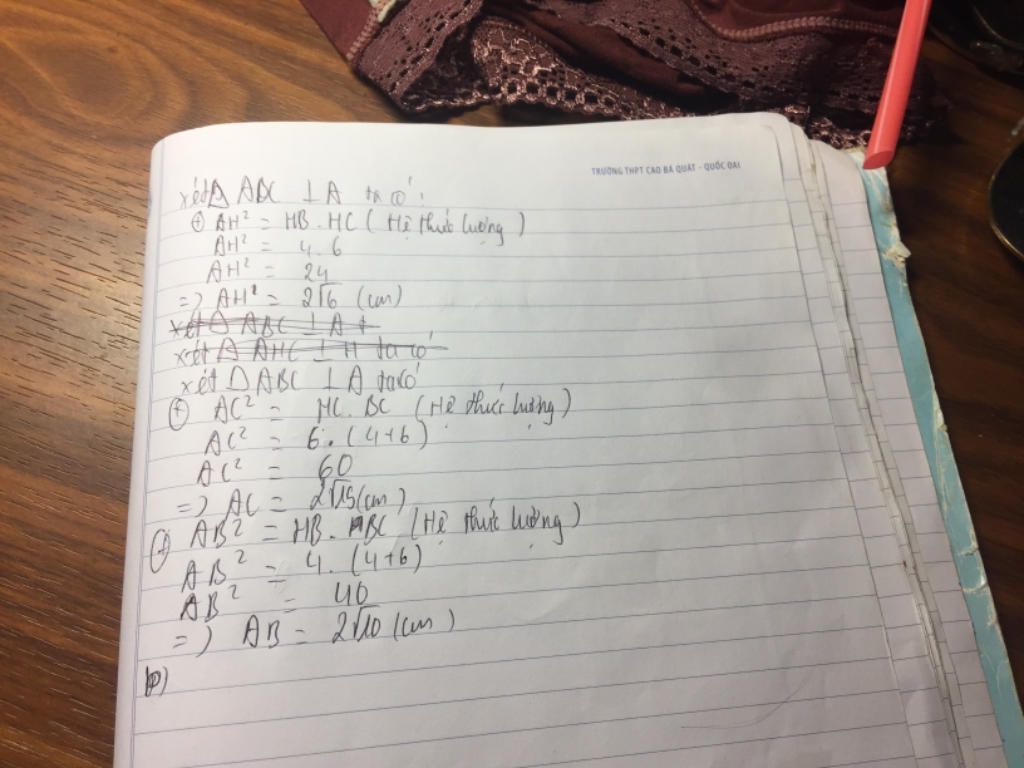 TRƯỜNG THPT CAO BÁ QUÁT - QUỐC OAI
xét Δ ABC ⊥ A ta có:
⊕ AH² = HB . HC ( Hệ thức lượng )
AH² = 4 . 6
AH² = 24
=> AH² = 2√6 (cm)
xét Δ ABC ⊥ A +
xét Δ AHC ⊥ H ta có
xét Δ ABC ⊥ A ta có
⊕ AC² = HC . BC (Hệ thức lượng )
AC² = 6 . (4+6)
AC² = 60
=> AC = 2√15 (cm)
⊕ AB² = HB . BC (Hệ thức lượng )
AB² = 4 . (4+6)
AB² = 40
=> AB = 2√10 (cm)
b)